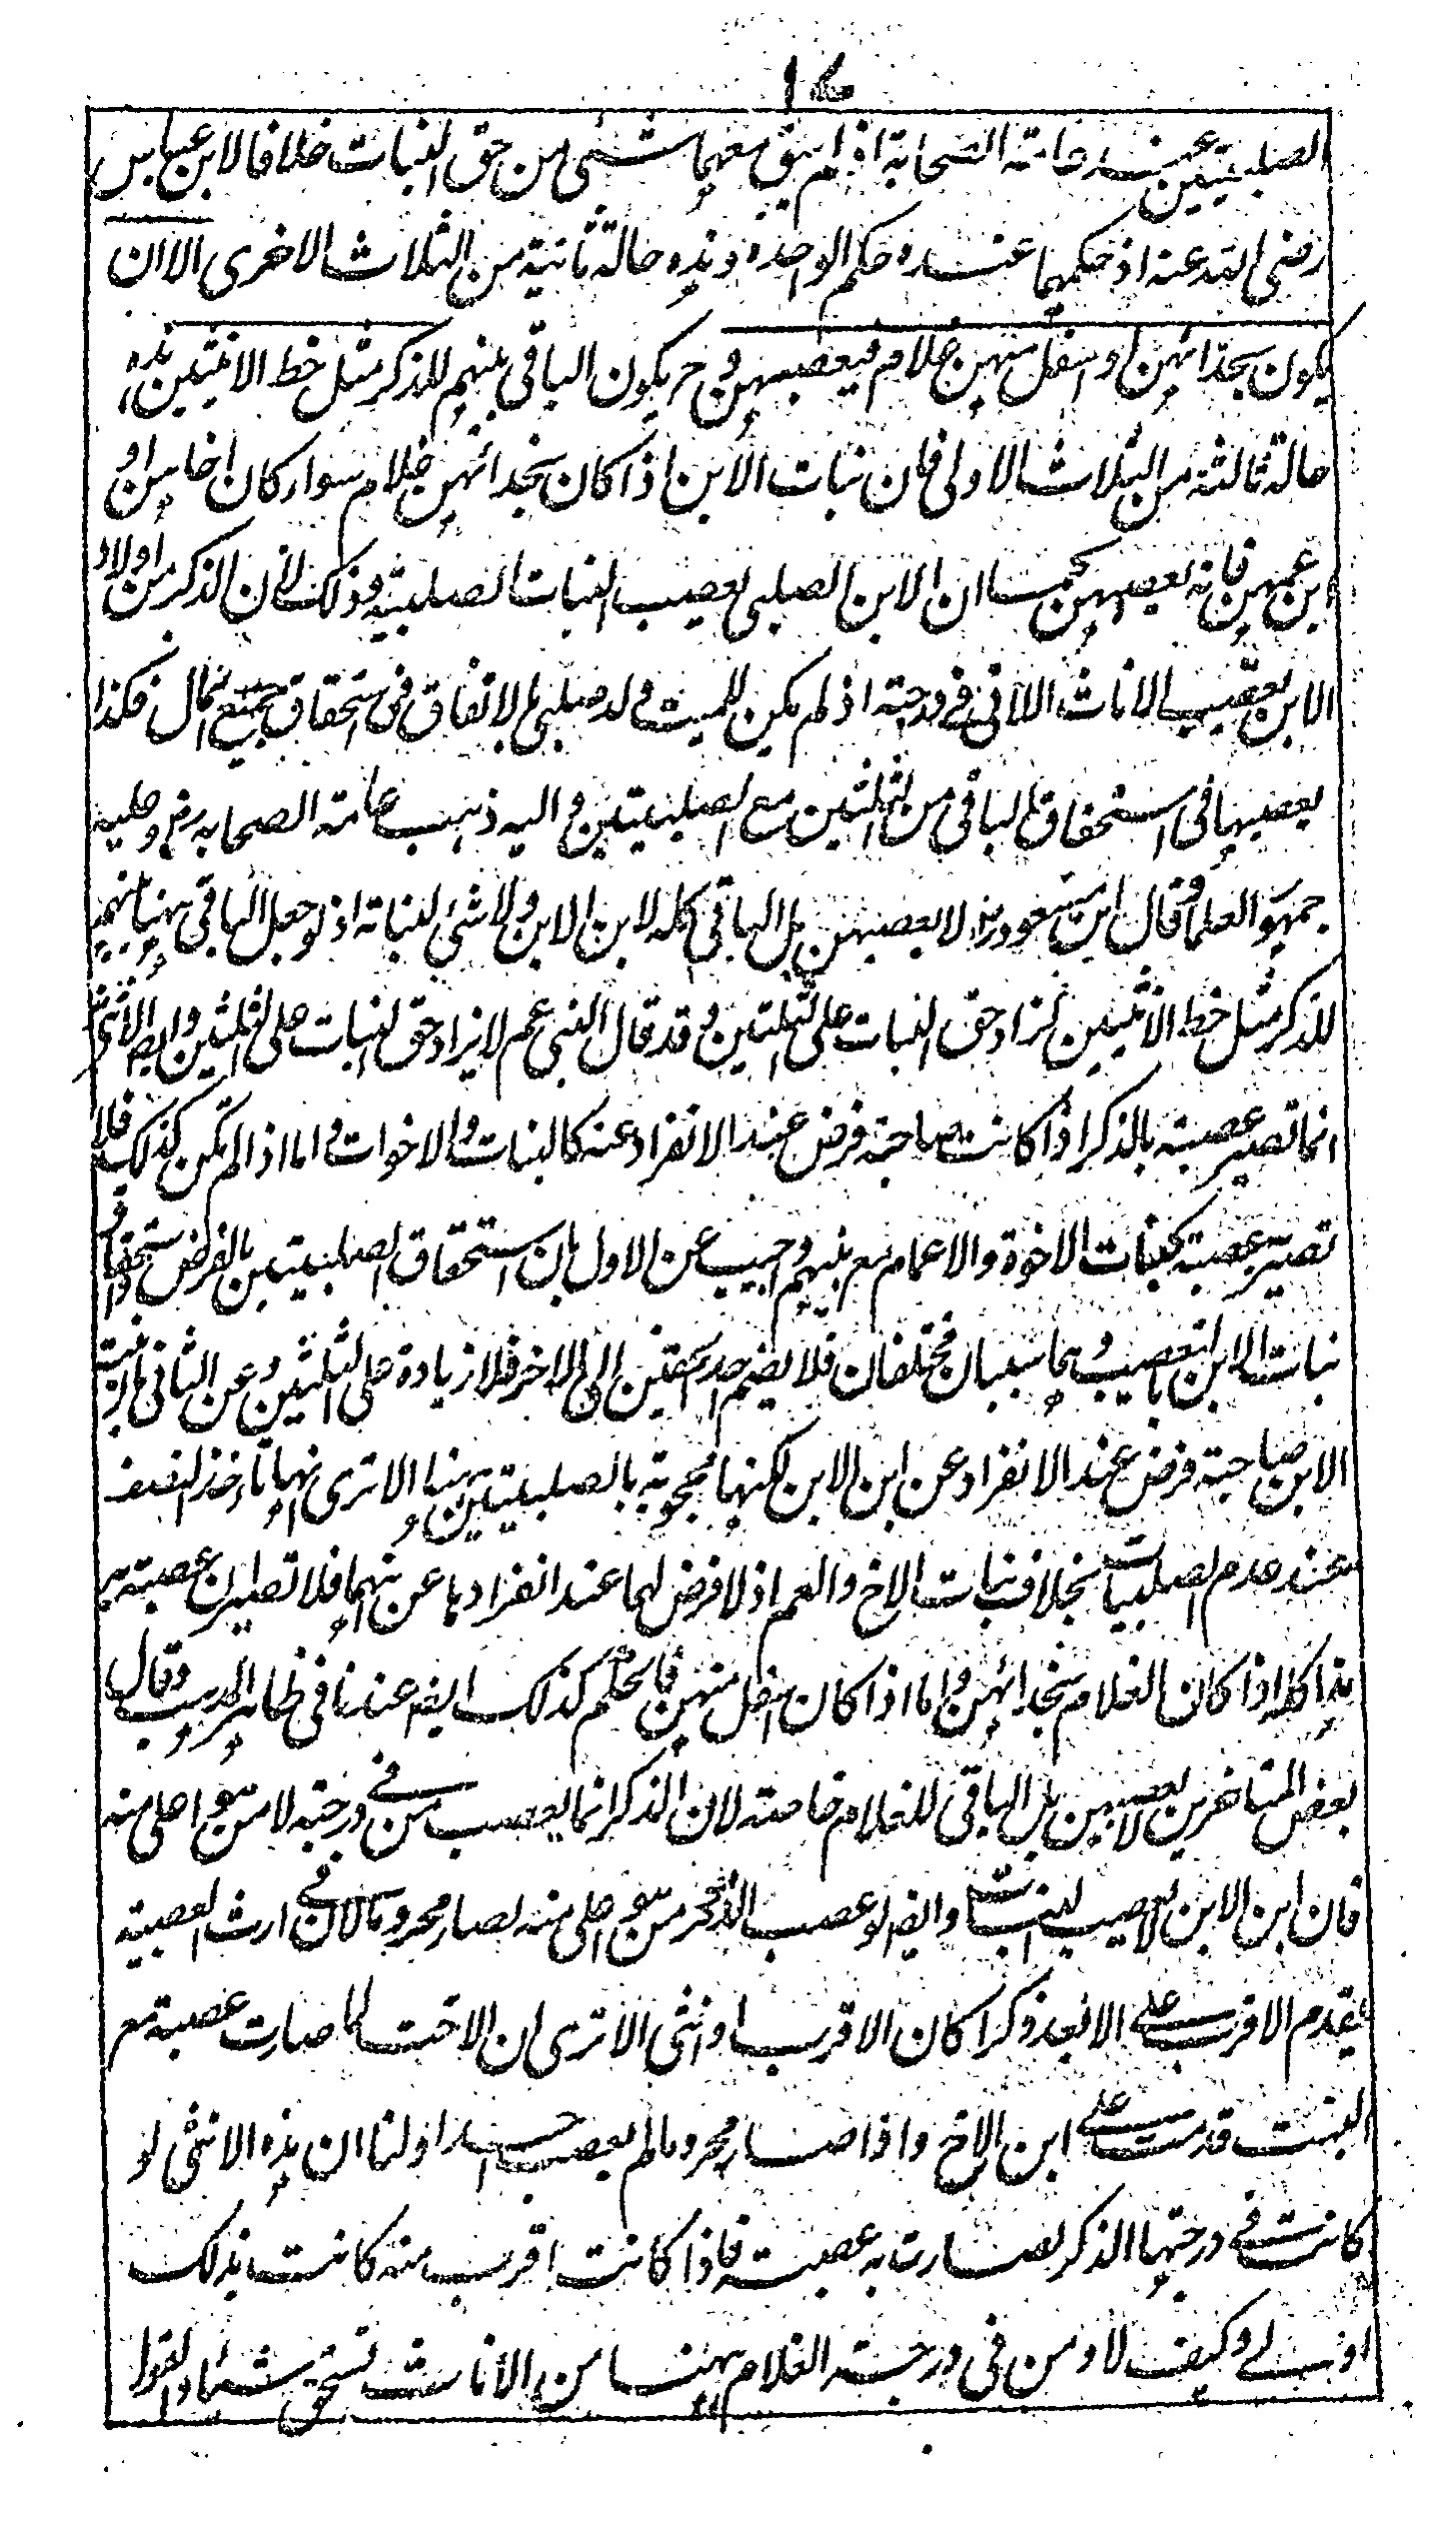 الصلبيتين عند عامة الصحابة اذ لم يبق معهما شئ من حق البنات خلافا لابن عباس
رضى الله عنه اذ حكمهما عنده حكم الواحدة وهذه حالة ثانية من الثلاث الاخرى الا ان
يكون بحذائهن او اسفل منهن غلام فيعصبهن و ح يكون الباقى بينهم للذكر مثل حظ الانثيين هذه
حالة ثالثة من الثلاث الاولى فان بنات الابن اذا كان بحذائهن غلام سواء كان اخاهن او
ابن عمهن فانه يعصبهن كما ان الابن الصلبى يعصب البنات الصلبية وذلك لان الذكر من اولاد
الابن يعصب الاناث اللاتى فى درجته اذ لم يكن للميت ولد صلبى بالاتفاق فى استحقاق جميع المال فكذا
يعصبها فى استحقاق الباقى من الثلثين مع الصلبيتين واليه ذهب عامة الصحابه رض وعليه
جمهور العلماء وقال ابن مسعود رض لا يعصبهن بل الباقى كله لابن الابن ولا شئ لبناته اذ لو جعل الباقى ههنا بينهم
للذكر مثل حظ الانثيين لزاد حق البنات على الثلثين وقد قال النبى عم لا يزاد حق البنات على الثلثين وايض الانثى
انما تصير عصبة بالذكر اذا كانت صاحبة فرض عند الانفراد عنه كالبنات والاخوات واما اذا لم تكن كذلك فلا
تصير عصبة كبنات الاخوة والاعمام مع بنيهم واجيب عن الاول بان استحقاق الصلبيتين بالفرض واستحقاق
بنات الابن بالتعصيب وهما سببان مختلفان فلا يضم احد الحقين الى الاخر فلا زيادة على الثلثين وعن الثانى بان بنت
الابن صاحبة فرض عند الانفراد عن ابن الابن لكنها محجوبة بالصلبيتين ههنا الا ترى انها تاخذ النصف
عند عدم الصلبيات بخلاف بنات الاخ والعم اذ لا فرض لهما عند انفرادهما عن ابنهما فلا تصيران عصبة به
هذا كله اذا كان الغلام بحذائهن واما اذا كان اسفل منهن فالحكم كذلك ايض عندنا فى ظاهر المذهب وقال
بعض المتاخرين لا يعصبهن بل الباقى للغلام خاصة لان الذكر انما يعصب من فى درجته لا من هو اعلى منه
فان ابن الابن لا يعصب البنت وايض لو عصب الذكر من هو اعلى منه لصار محروما لان فى ارث العصبية
يقدم الاقرب على الابعد ذكرا كان الاقرب او انثى الا ترى ان الاخت لما صارت عصبة مع
البنت قدمت على ابن الاخ واذا صار محروما لم يعصب احدا ولنا ان هذه الانثى لو
كانت فى درجتها الذكر لصارت به عصبة فاذا كانت اقرب منه كانت بذلك
اولى وكيف لا ومن فى درجة الغلام ههنا من الاناث تستحق شيئا